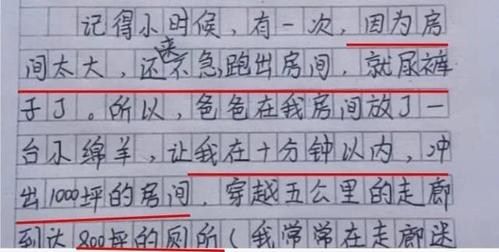 记得小时候，有一次，因为房
间太大，还来不急跑出房间，就尿裤
子了。所以，爸爸在我房间放了一
台小绵羊，让我在十分钟以内，冲
出1000坪的房间，穿越五公里的走廊
到达800坪的厕所（我常常在走廊迷